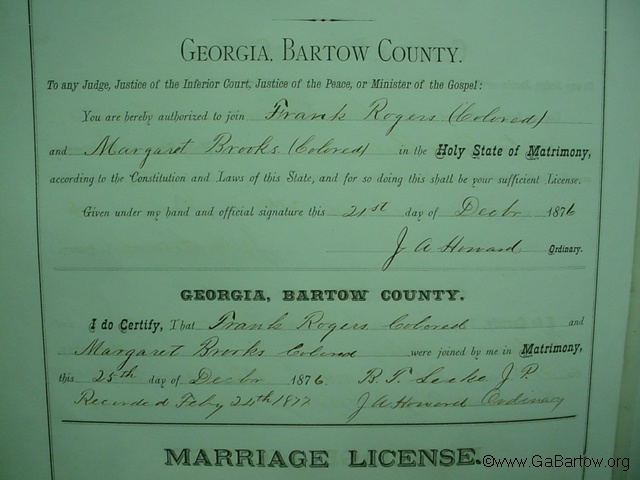 GEORGIA, BARTOW COUNTY.
To any Judge, Justice of the Inferior Court, Justice of the Peace, or Minister of the Gospel:
You are hereby authorized to join Frank Rogers (Colored)
and Margaret Brooks (Colored) in the Holy State of Matrimony,
according to the Constitution and Laws of this State, and for so doing this shall be your sufficient License.
Given under my hand and official signature this 21st day of Decbr 1876
J A Howard Ordinary.
GEORGIA, BARTOW COUNTY.
I do Certify, That Frank Rogers Colored and
Margaret Brooks Colored were joined by me in Matrimony,
this 25th day of Decbr 1876. B. T. Leake J. P.
Recorded Feby 24th 1877 J A Howard Ordinary
MARRIAGE LICENSE.
©www.GaBartow.org